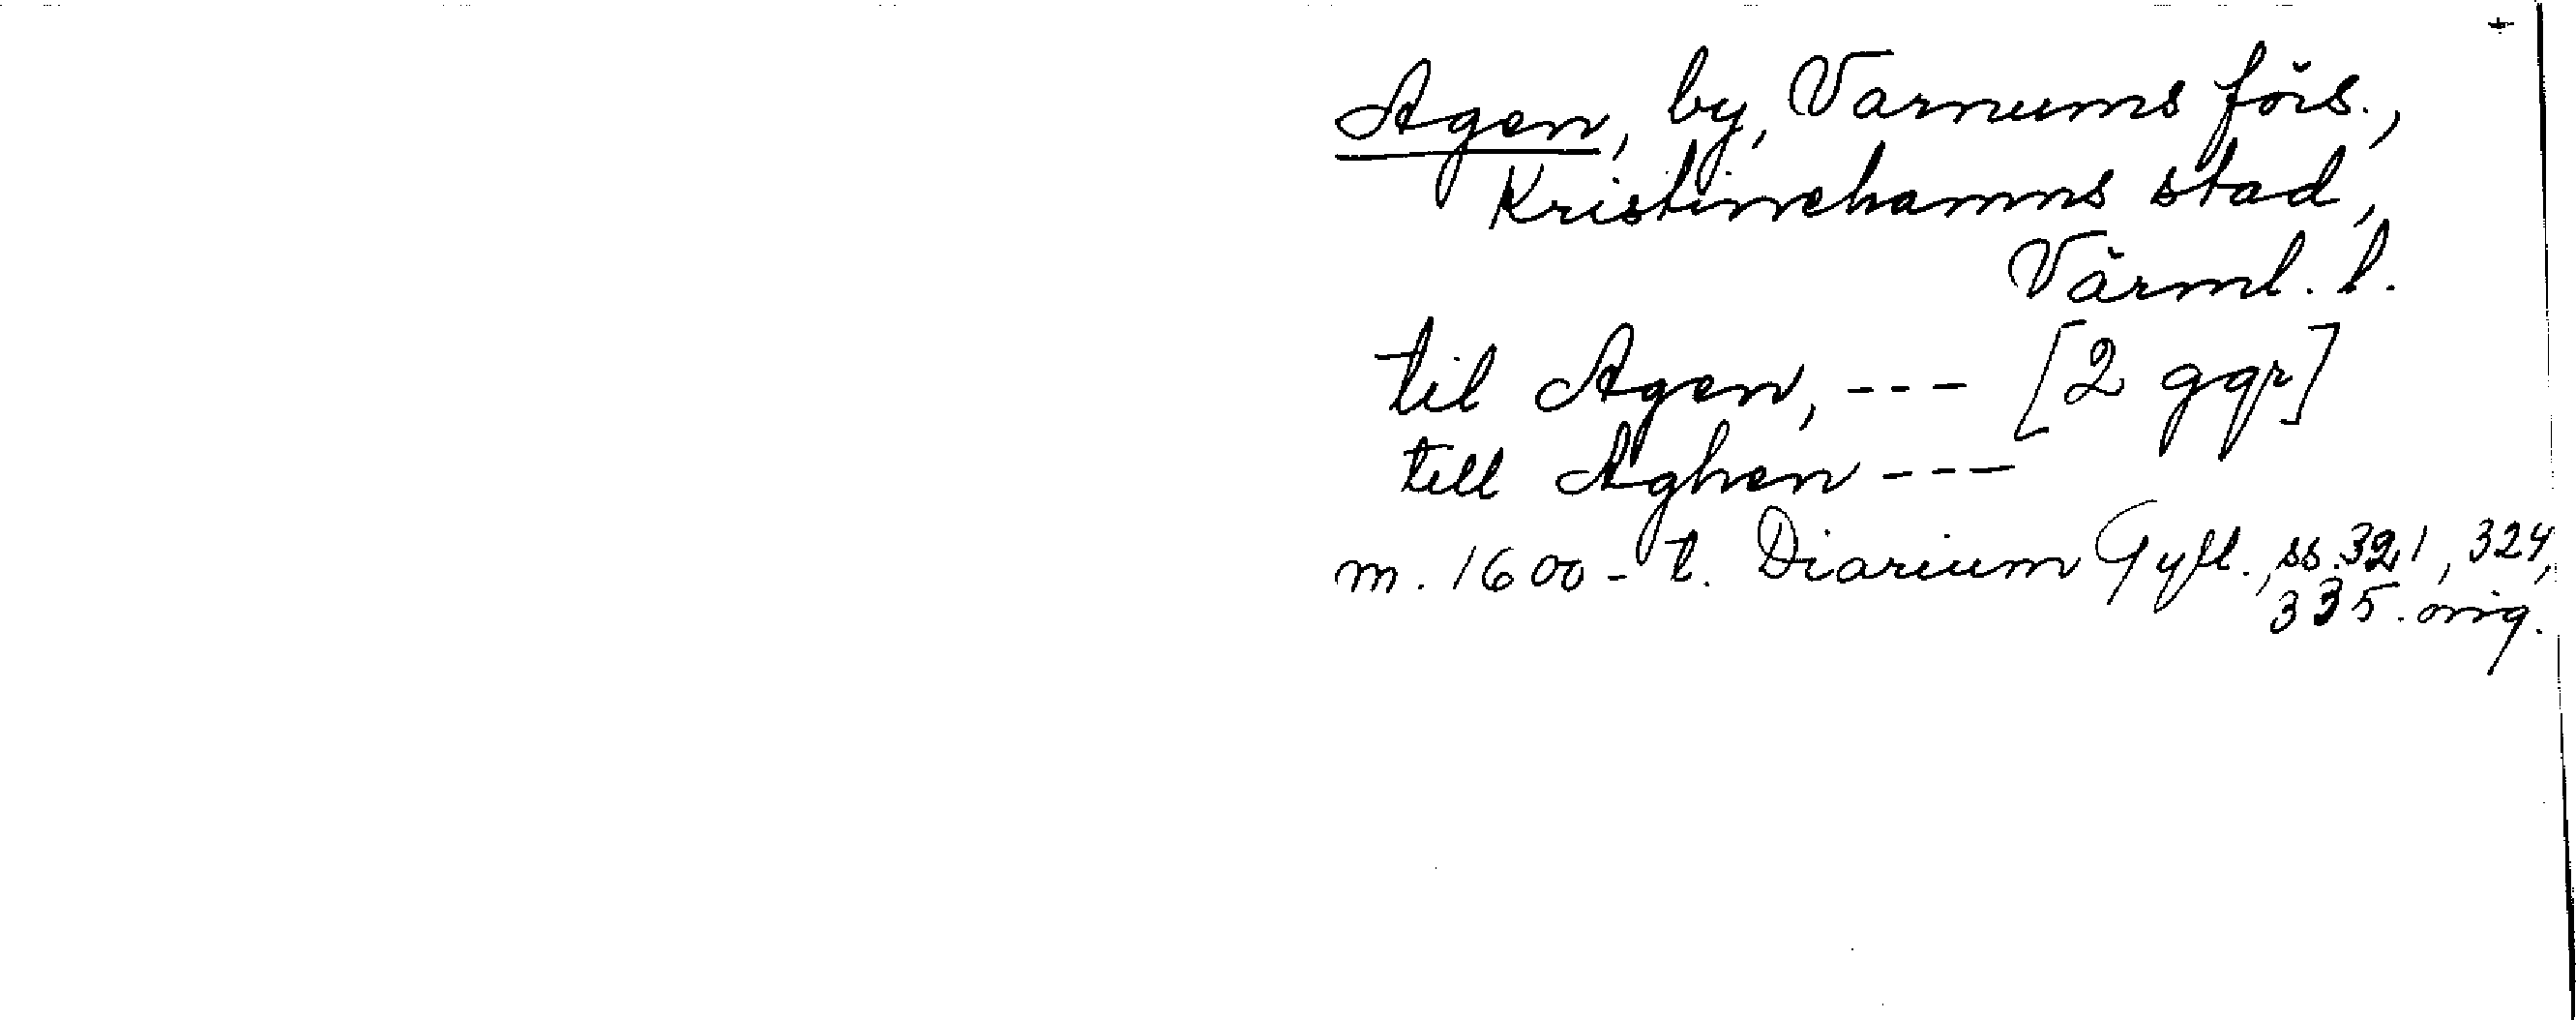 +
Agen, by, Varnums förs.,
Kristinehamns stad,
Värml. l.
til Agen, --- [2 ggr]
till Aghen ---
m. 1600-t. Diarium Gyll., ss. 321, 324,
335. orig.